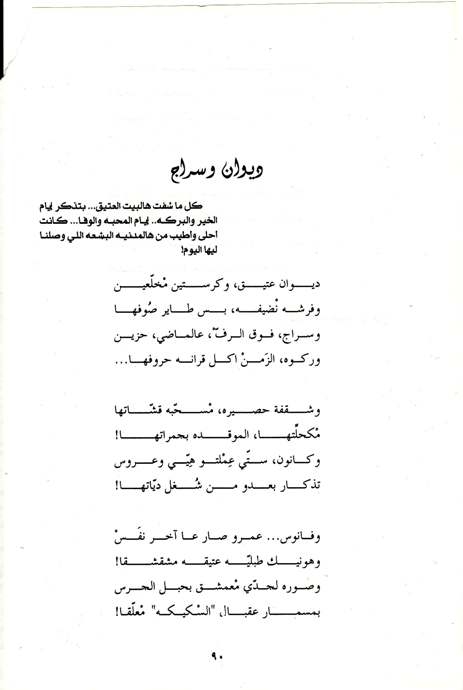 ديوان وسراج
كل ما شفت هالبيت العتيق... بتذكر إيام
الخير والبركه.. إيام المحبه والوفا... كانت
احلى واطيب من هالمدنيه البشعه اللي وصلنا
ليها اليوم!
ديوان عتيق، وكرستين مْخلّعين
وفرشه نْضيفه، بس طاير صُوفها
وسراج، فوق الرفّ، عالماضي، حزين
وركوه، الزمنْ اكل قرانه حروفها...
وشقفة حصيره، مْسحّبه قشّاتها
مْكحلّتها، الموقده بجمراتها!
وكانون، ستّي عِمْلتو هيّي وعروس
تذكار بعدو من شُغل ديّاتها!
وفانوس... عمرو صار عا آخر نفَسْ
وهونيك طبليّه عتيقه مشقشقا!
وصوره لجدّي مْعمشق بحبل الجرس
بمسمار عقبال "السْكيكه" مْعلّقا!
٩٠